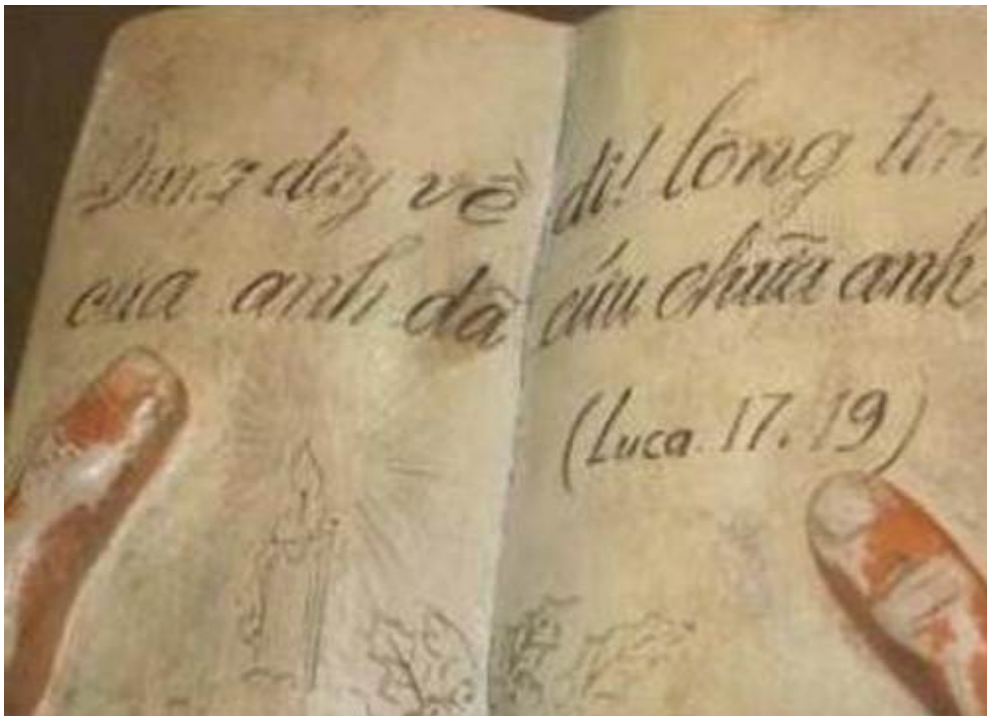 Đứng dậy về đi! lòng tin
của anh đã cứu chữa anh
(Luca. 17. 19)